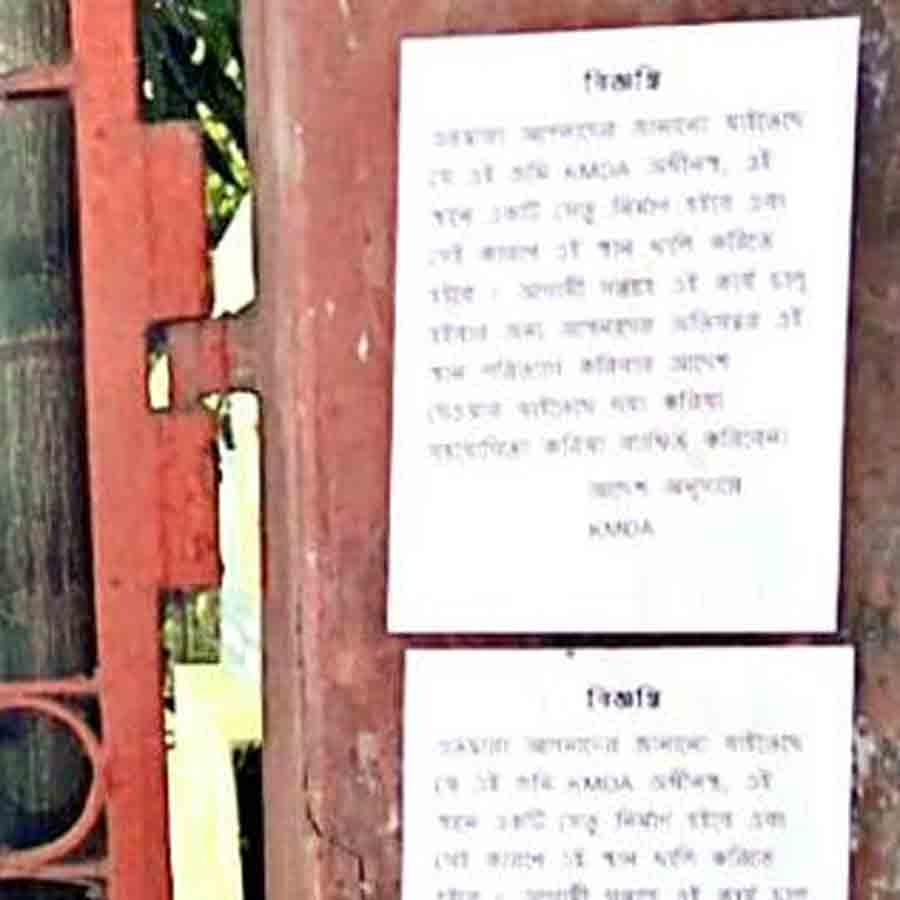 বিজ্ঞপ্তি
এতদ্বারা আপনাদের জানানো যাইতেছে
যে এই জমি KMDA অধীনস্থ, এই
স্থানে একটি সেতু নির্মাণ হইবে এবং
সেই কারণে এই স্থান খালি করিতে
হইবে । আগামী সপ্তাহে এই কার্য চালু
হইবার জন্য আপনাদের অতিসত্বর এই
স্থান পরিত্যাগ করিবার আদেশ
দেওয়া যাইতেছে দয়া করিয়া
সহযোগিতা করিয়া বাধিত করিবেন।
আদেশ অনুসারে
KMDA
বিজ্ঞপ্তি
এতদ্বারা আপনাদের জানানো যাইতেছে
যে এই জমি KMDA অধীনস্থ, এই
স্থানে একটি সেতু নির্মাণ হইবে এবং
সেই কারণে এই স্থান খালি করিতে
হইবে । আগামী সপ্তাহে এই কার্য চালু